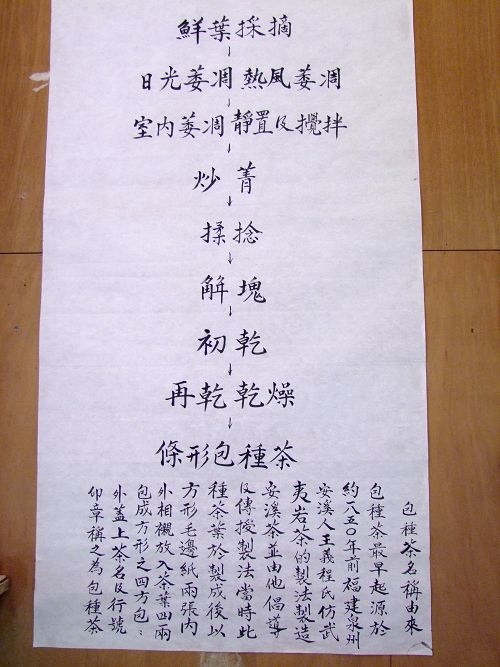 鮮葉採摘
↓
日光萎凋 熱風萎凋
↓
室内萎凋 靜置及攪拌
↓
炒菁
↓
揉捻
↓
解塊
↓
初乾
↓
再乾乾燥
↓
條形包種茶
包種茶名稱由來
包種茶最早起源於
約一八五〇年前福建泉州
安溪人王義程氏仿武
夷岩茶的製法製造
安溪茶並由他倡導
及傳授製法當時此
種茶葉於製成後以
方形毛邊紙兩張內
外相襯放入茶葉四兩
包成方形之四方包:
外蓋上茶名及行號
印章稱之為包種茶